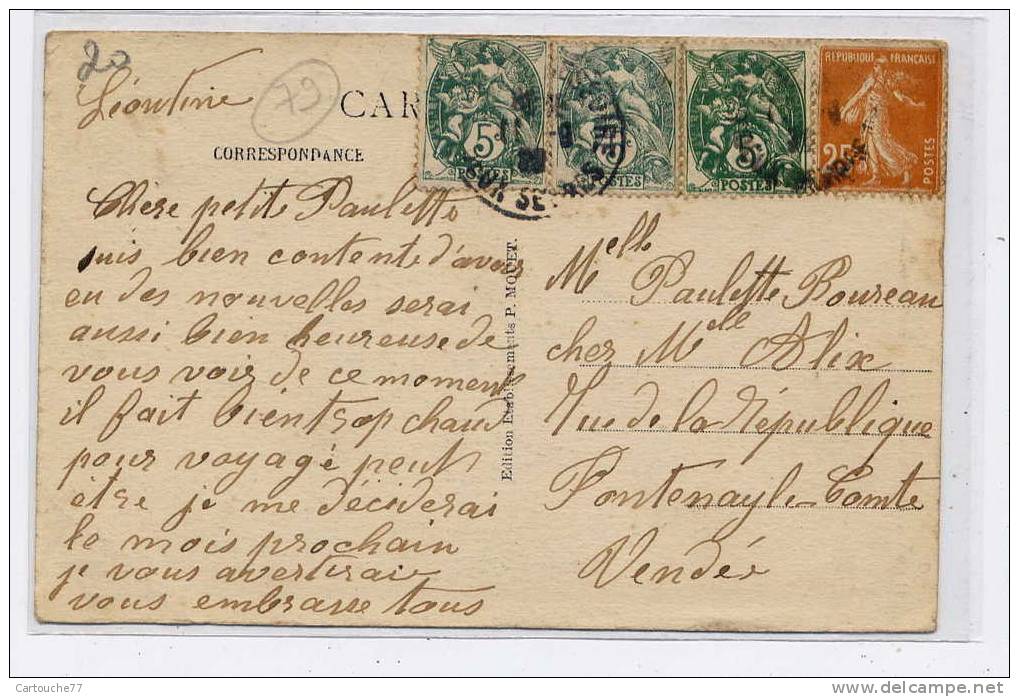 20
Léontine
79
CAR
CORRESPONDANCE
5c
POSTES
5c
POSTES
5c
POSTES
RÉPUBLIQUE FRANÇAISE
25c
POSTES
SUR SEVRES
Chere petite Paulette
suis bien contente d'avoir
eu des nouvelles serai
aussi bien heureuse de
vous voir de ce moment
il fait bien trop chaud
pour voyagé peut
être je me déciderai
le mois prochain
je vous avertirai
vous embrasse tous
Edition Etablissements P. MOQUET.
Melle Paulette Boureau
chez Melle Alix
Rue de la République
Fontenay le Comte
Vendée
Cartouche77
www.delcampe.net